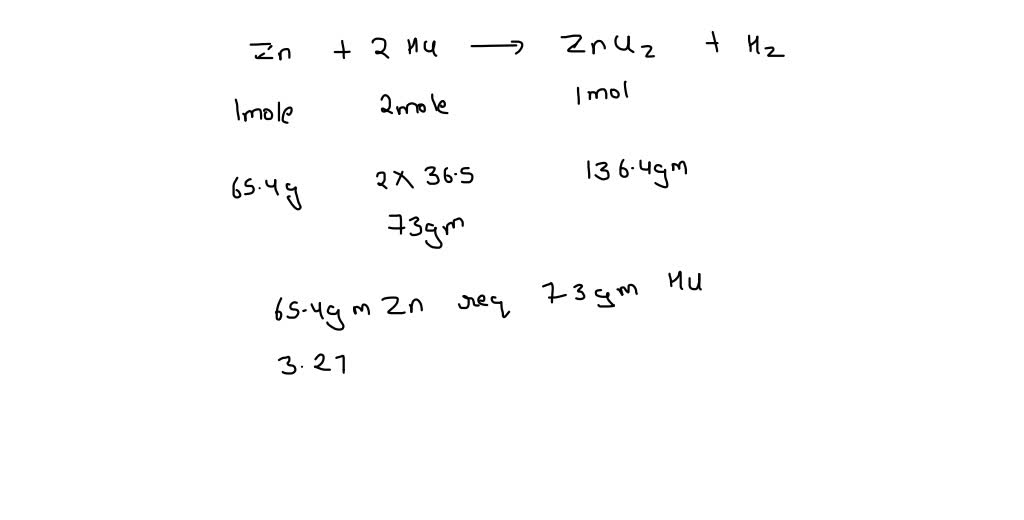 Zn + 2 HCl → ZnCl2 + H2
1mole 2mole 1mol
65.4g 2× 36.5 136.4gm
73gm
65.4gm Zn req 73gm HCl
3.27